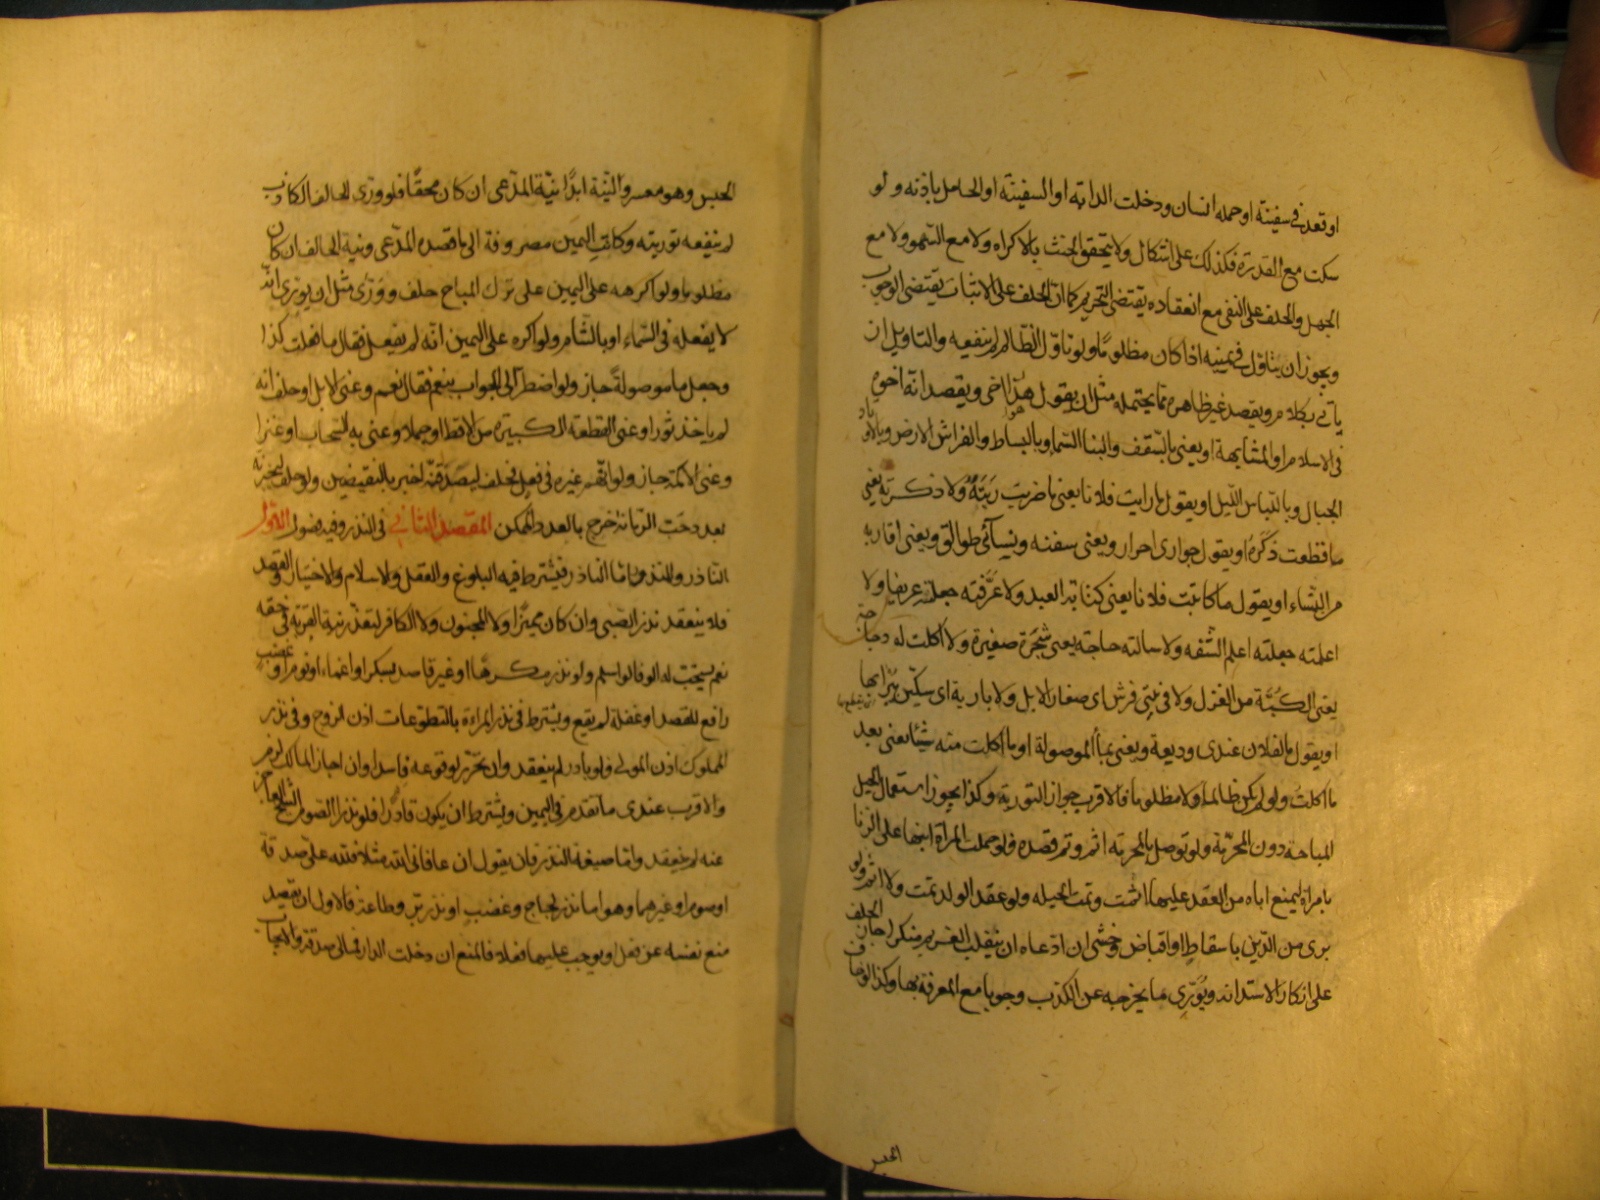 او قعد في سفينة او حمله انسان ودخلت الدابة او السفينة او الحامل باذنه ولو
سكت مع القدرة فكذلك على اشكال ولا يتحقق الحنث بالاكراه ولا مع السهو ولا مع
الجهل والحلف على النفي مع انعقاده يقتضي التحريم كما ان الحلف على الاثبات يقتضي الوجوب
ويجوز ان يتاول في يمينه اذا كان مظلوما ولو تاول الظالم لم ينفعه والتاويل ان
ياتي بكلام ويقصد غير ظاهره مما يحتمله مثل ان يقول هذا اخي ويقصد انه اخوه
في الاسلام او المشابهة او يعني بالسقف والبنا السما وبالبساط والفراش الارض وبالاوتاد
الجبال وباللباس الليل او يقول ما رايت فلانا يعني ما ضربت ريته ولا ذكرته يعني
ما قطعت ذكره او يقول جواري احرار ويعني سفنه ونسائي طوالق ويعني اقاربه
من النساء او يقول ما كاتبت فلانا يعني كتابة العبد ولا عرفته جعلته عريفا ولا
اعلمته جعلته اعلم الشفه ولا سالته حاجة يعني شجرة صغيرة ولا اكلت له دجاجة
يعني الكبة من الغزل ولا في بيتي فرش اي صغار الابل ولا بارية اي سكين يبرا بها
او يقول ما لفلان عندي وديعة ويعني بما الموصولة او ما اكلت منه شيئا يعني بعد
ما اكلت ولو لم يكن ظالما ولا مظلوما فالاقرب جواز التورية وكذا يجوز استعمال الحيل
المباحة دون المحرمة ولو توصل بالمحرمة اثم وتم قصده فلو حملت المراة ابنها على الزنا
بامراة ليمنع اباه من العقد عليها اثمت وتمت الحيلة ولو عقد الولد تمت ولا اثم ولو
برى من الدين باسقاط او اقباض وخشي ان ادعاه ان ينقلب الغريم منكرا جاز الحلف
على انكار الاستدانة ويوري ما يخرجه عن الكذب وجوبا مع المعرفة بها وكذا لو خاف
الحبس
الحبس وهو معسر والنية ابدا نية المدعي ان كان محقا فلو ورى الحالف الكاذب
لم ينفعه توريته وكانت اليمين مصروفة الى ما قصده المدعي ونية الحالف ان كان
مظلوما ولو اكرهه على اليمين على ترك المباح حلف وورى مثل ان يوري انه
لا يفعله في السماء او بالشام ولو اكره على اليمين انه لم يفعل فقال ما فعلت كذا
وجعل ما موصولة جاز ولو اضطر الى الجواب بنعم فقال نعم وعنى الابل او حلف انه
لم ياخذ ثورا وعنى القطعة الكبيرة من الاقط او جملا وعنى به السحاب او عنزا
وعنى الاكمة جاز ولو اتهم غيره في فعل فحلف ليصدقنه اخبر بالنقيضين ولو حلف ليخبرنه
بعدد حب الرمانة خرج بالعدد الممكن المقصد الثاني في النذر وفيه فصول الاول
الناذر والنذر اما الناذر فيشترط فيه البلوغ والعقل والاسلام والاختيار والقصد
فلا ينعقد نذر الصبي وان كان مميزا ولا المجنون ولا الكافر لتعذر نية القربة في حقه
نعم يستحب له الوفا لو اسلم ولو نذر مكرها او غير قاصد بسكر او اغماء او نوم او غضب
رافع للقصد او غفلة لم يقع ويشترط في نذر المراءة بالتطوعات اذن الزوج وفي نذر
المملوك اذن المولى فلو بادر لم ينعقد وان تحرر لوقوعه فاسدا وان اجاز المالك لزم
والاقرب عندي ما تقدم في اليمين ويشترط ان يكون قادرا فلو نذر الصوم الشيخ العاجز
عنه لم ينعقد واما صيغة النذر فان يقول ان عافاني الله مثلا فلله علي صدقة
او صوم او غيرهما وهو اما نذر لجاج وغضب او نذر بر وطاعة فالاول ان يقصد
منع نفسه عن فعل او يوجب عليها فعلا فالمنع ان دخلت الدار فمالي صدقة والايجاب